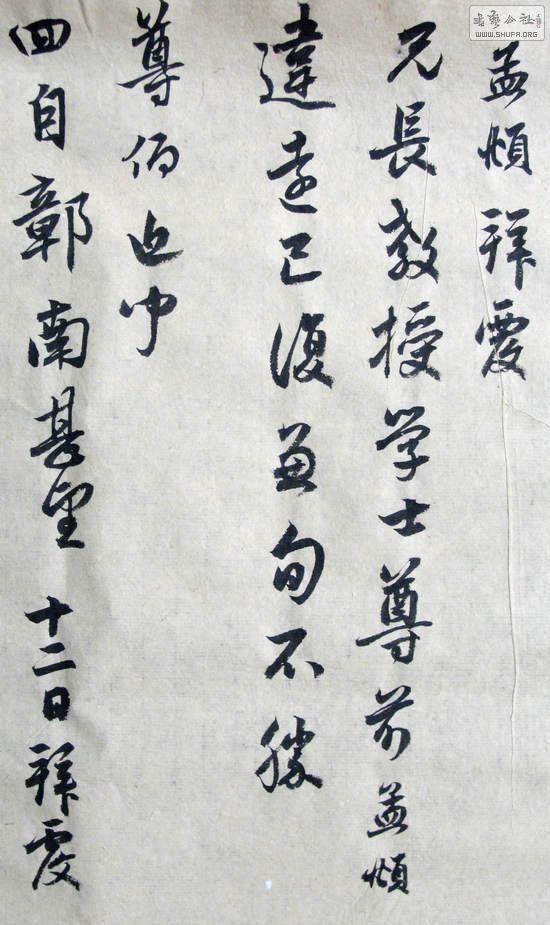 孟頫拜覆
兄長教授学士尊前孟頫
違遠已復兼旬不勝
尊伯近中
四自鄣南甚望 十二日拜覆
書藝公社
WWW.SHUFA.ORG